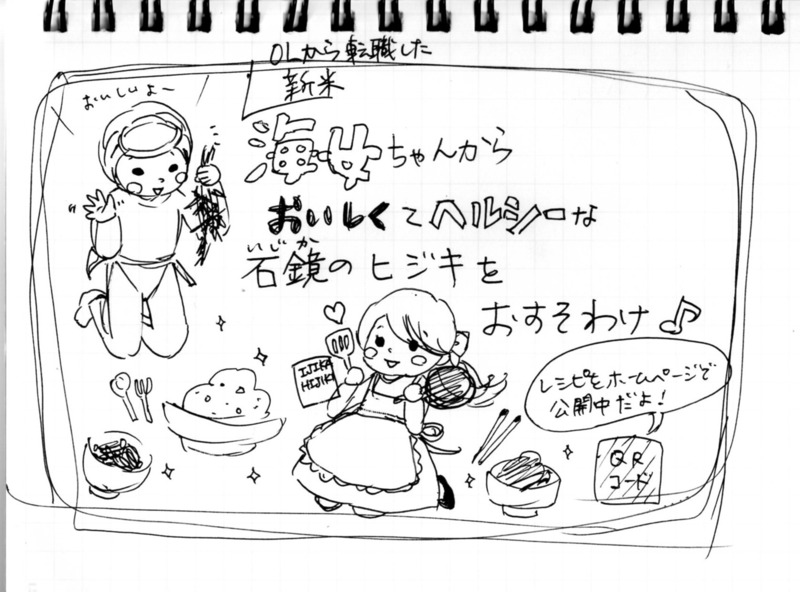 OLから転職した
新米
おいしいよー
海女ちゃんから
おいしくてヘルシーな
いじか
石鏡のヒジキを
おすそわけ♪
IJIKA
HIJIKI
レシピもホームページで
公開中だよ!
QR
コード